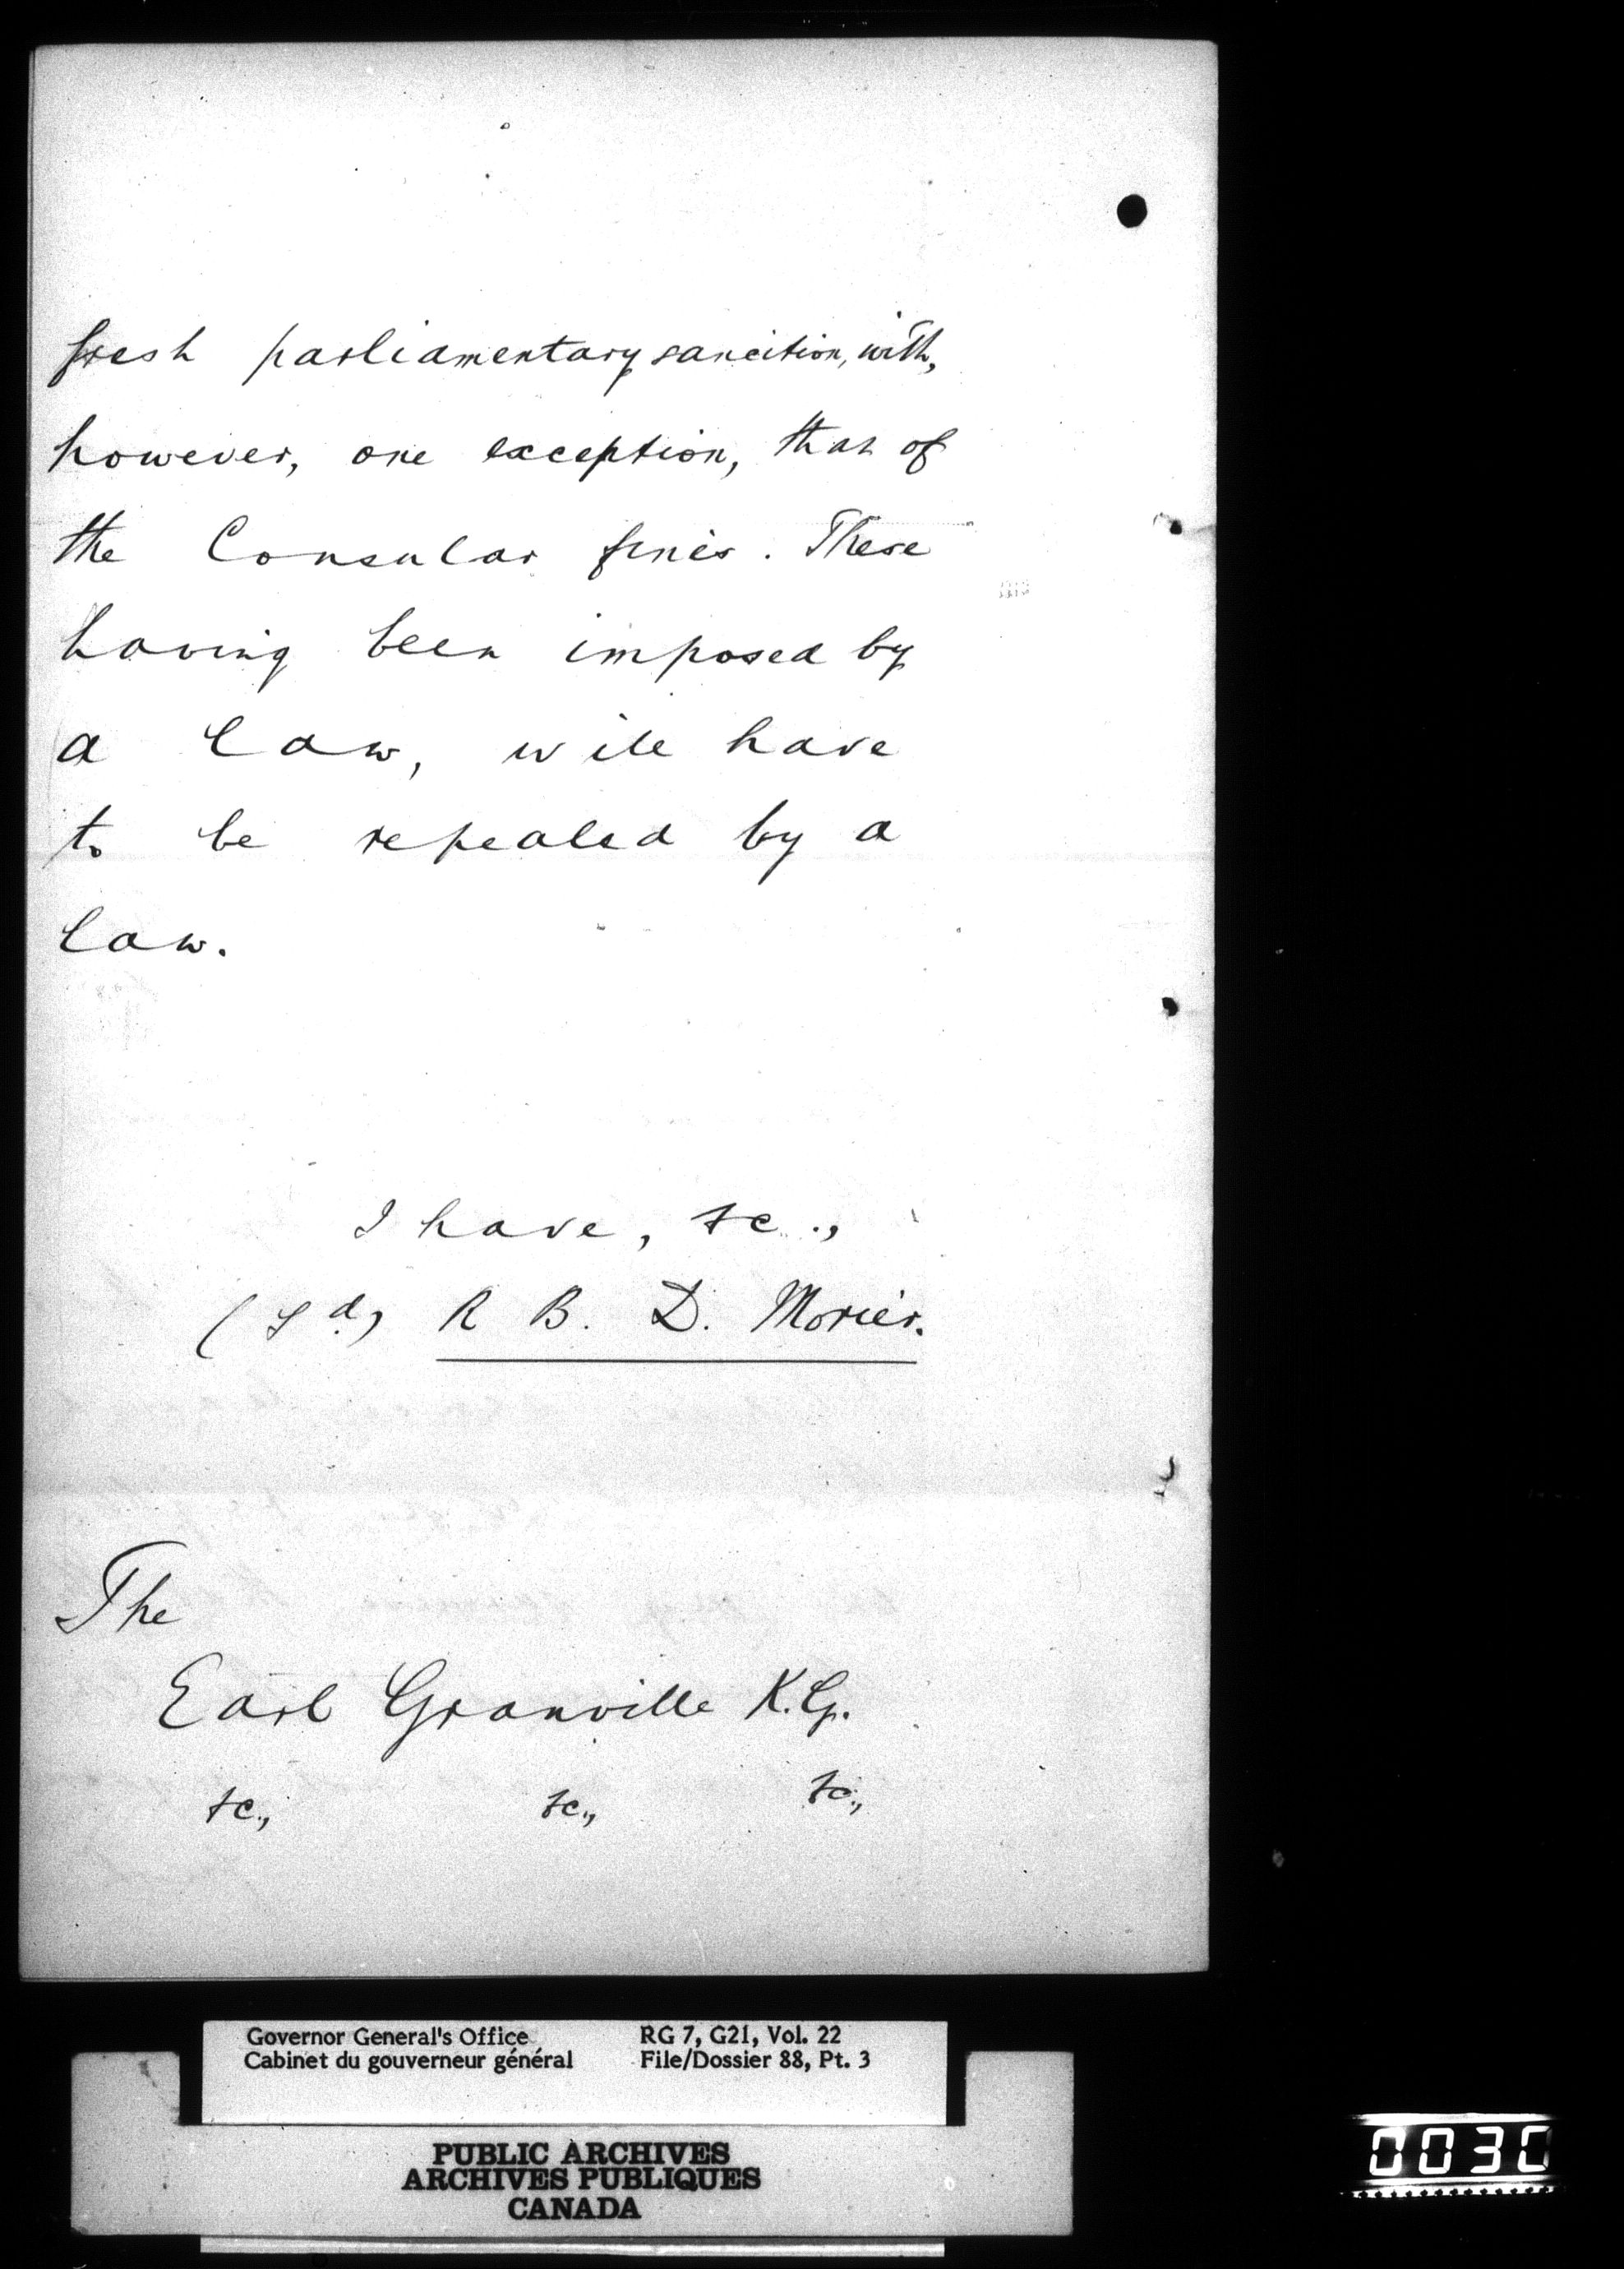 fresh parliamentary sancition, with,
however, one exception, that of
the Consular fines. These
having been imposed by
a law, will have
to be repealed by a
law.
I have, &c.,
(Sd) R B. D. Morier.
The
Earl Granville K.G.
&c., &c., &c.,
Governor General's Office RG 7, G21, Vol. 22
Cabinet du gouverneur général File/Dossier 88, Pt. 3
PUBLIC ARCHIVES
ARCHIVES PUBLIQUES
CANADA
0030